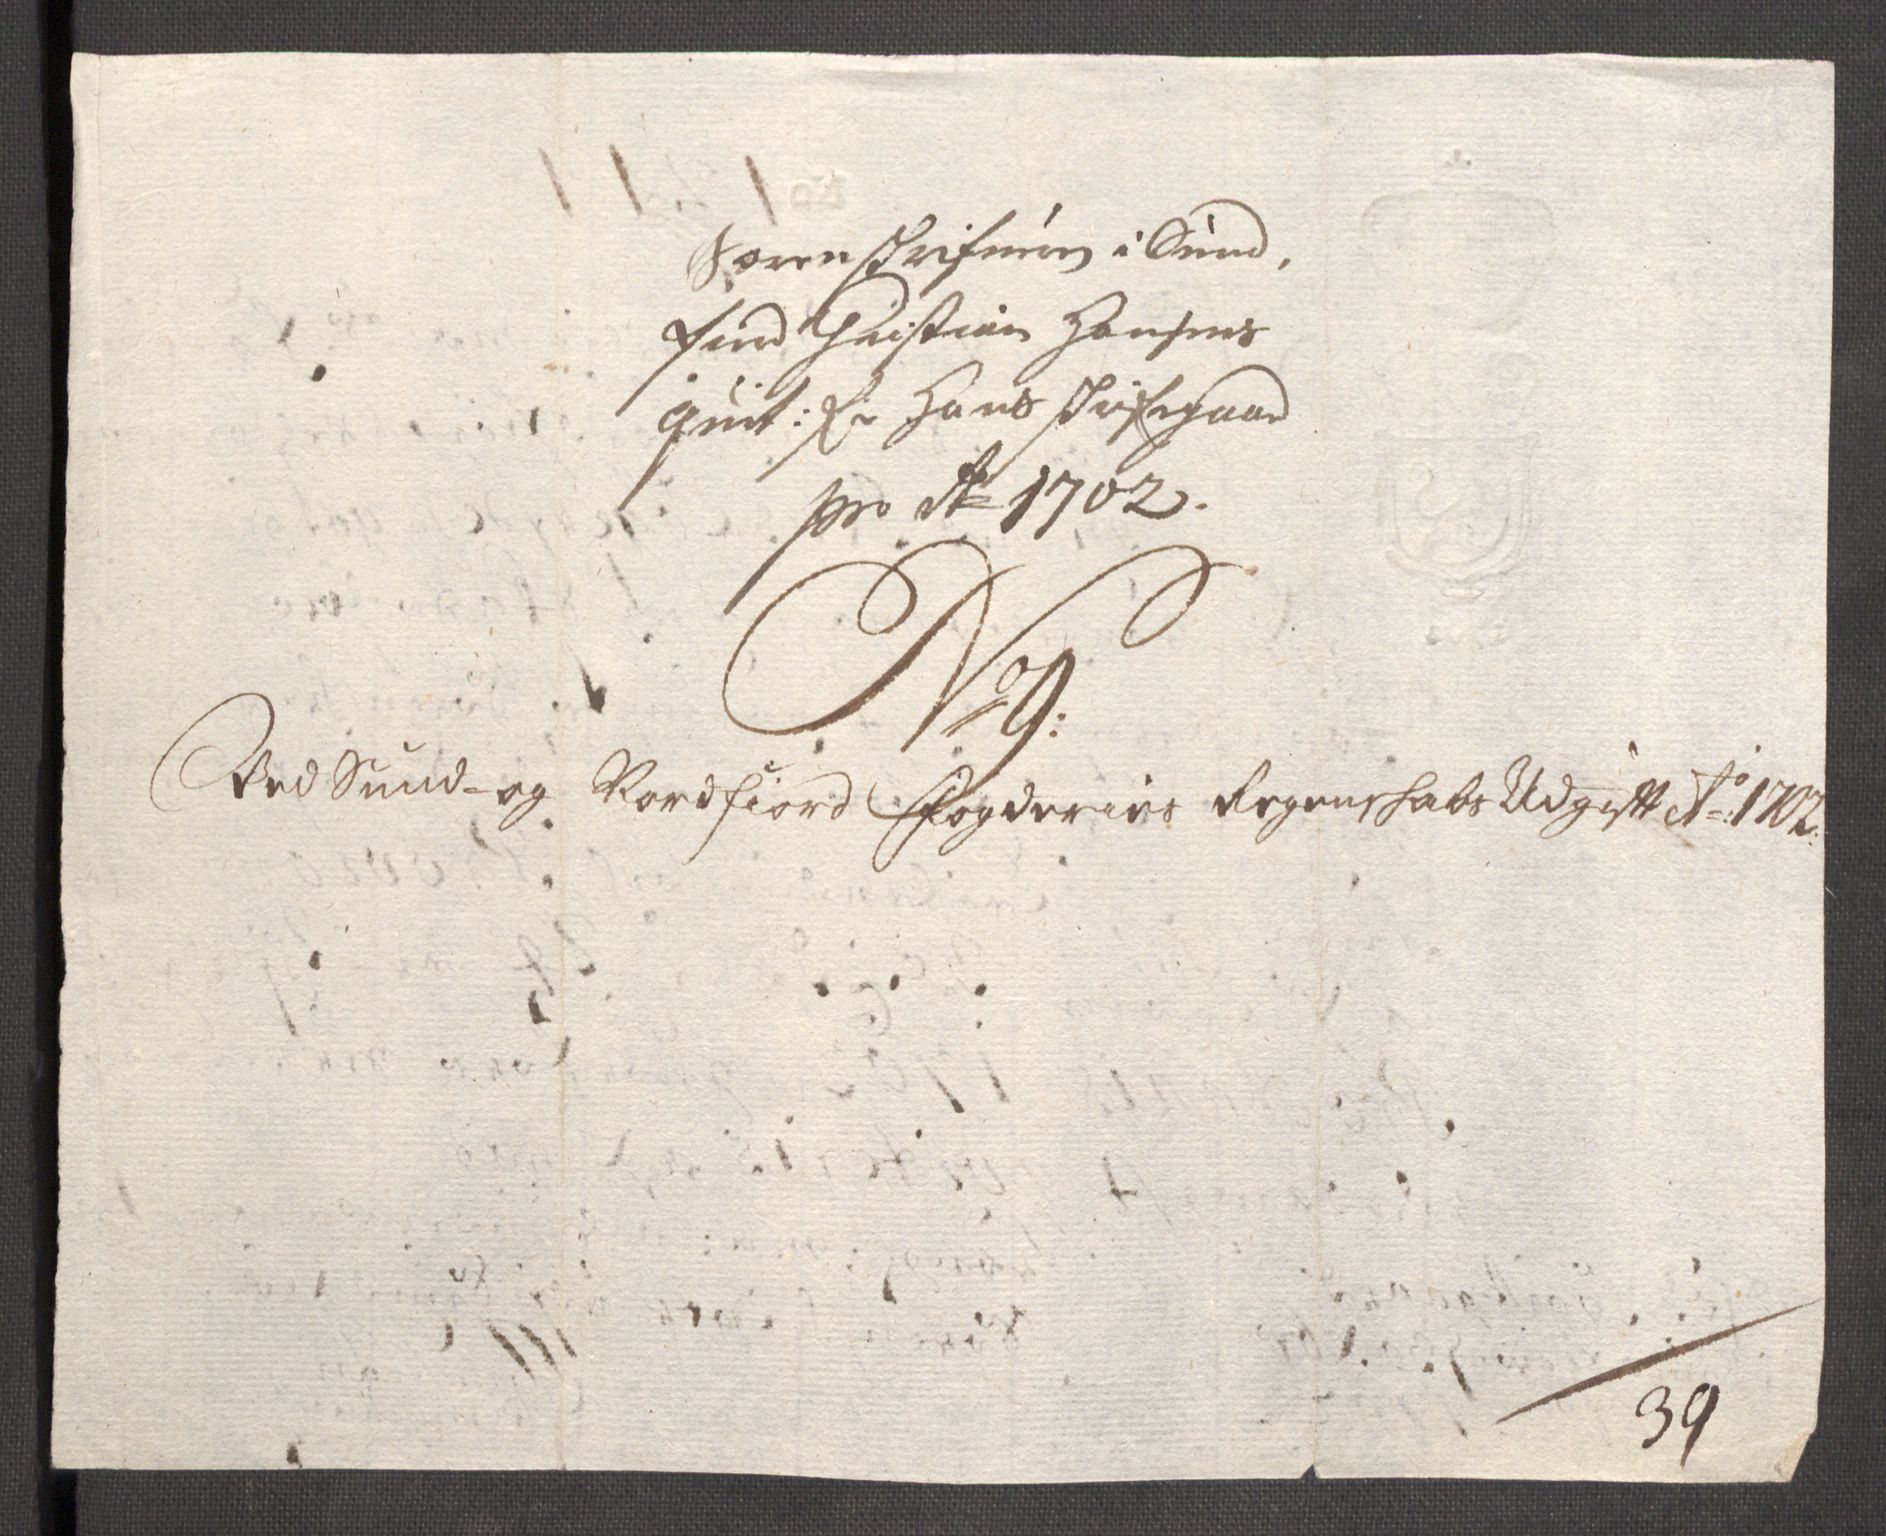 Sorenschrifueren i Sund,
fiord Christian Hansens
quit: for Hans schrifergaard
pro Ao 1702.
No 9:
Ved Sund- og Nordfiord Fogderies Regenschabs Udgifft Ao: 1702:
39